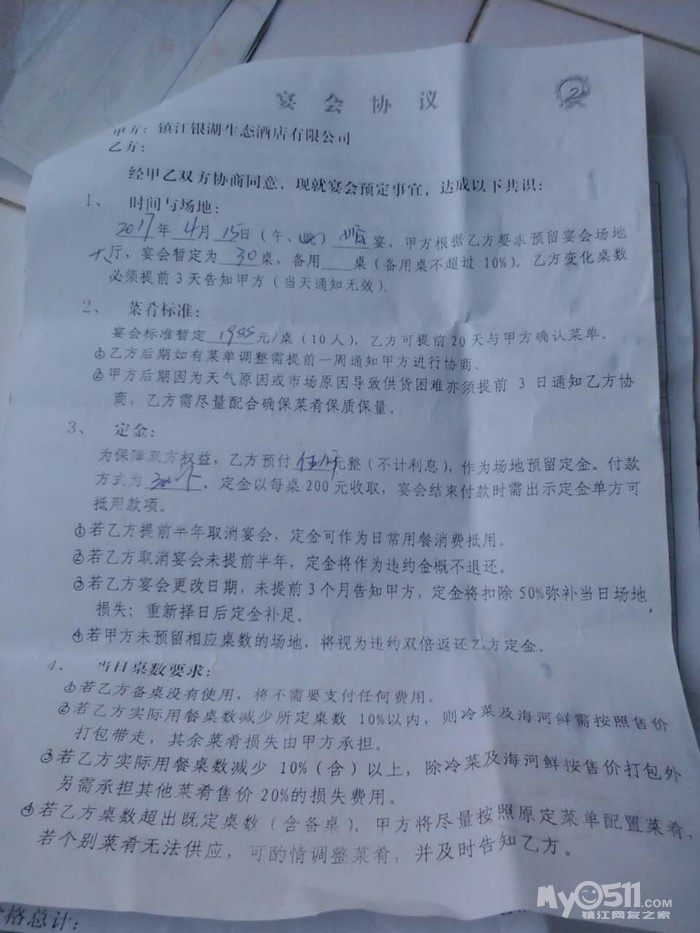 宴会协议
2
甲方：镇江银湖生态酒店有限公司
乙方：
经甲乙双方协商同意，现就宴会预定事宜，达成以下共识：
1、 时间与场地：
2017年 4月 15日（午、晚） 宴，甲方根据乙方要求预留宴会场地
大厅，宴会暂定为 30 桌，备用___桌（备用桌不超过 10%）。乙方变化桌数
必须提前 3天告知甲方（当天通知无效）。
2、 菜肴标准：
宴会标准暂定 元/桌（10人），乙方可提前20天与甲方确认菜单。
①乙方后期如有菜单调整需提前一周通知甲方进行协商。
②甲方后期因为天气原因或市场原因导致供货困难亦须提前 3 日通知乙方协
商，乙方需尽量配合确保菜肴保质保量。
3、 定金：
为保障双方权益，乙方预付 元整（不计利息），作为场地预留定金。付款
方式为 。定金以每桌200元收取，宴会结束付款时需出示定金单方可
抵用款项。
①若乙方提前半年取消宴会，定金可作为日常用餐消费抵用。
②若乙方取消宴会未提前半年，定金将作为违约金概不退还。
③若乙方宴会更改日期，未提前3个月告知甲方，定金将扣除50%弥补当日场地
损失；重新择日后定金补足。
④若甲方未预留相应桌数的场地，将视为违约双倍返还乙方定金。
4、 当日桌数要求：
①若乙方备桌没有使用，将不需要支付任何费用。
②若乙方实际用餐桌数减少所定桌数 10%以内，则冷菜及海河鲜需按照售价
打包带走，其余菜肴损失由甲方承担。
③若乙方实际用餐桌数减少 10%（含）以上，除冷菜及海河鲜按售价打包外
另需承担其他菜肴售价 20%的损失费用。
④若乙方桌数超出既定桌数（含备桌），甲方将尽量按照原定菜单配置菜肴，
若个别菜肴无法供应，可酌情调整菜肴，并及时告知乙方。
格总计：
My0511.com
镇江网友之家